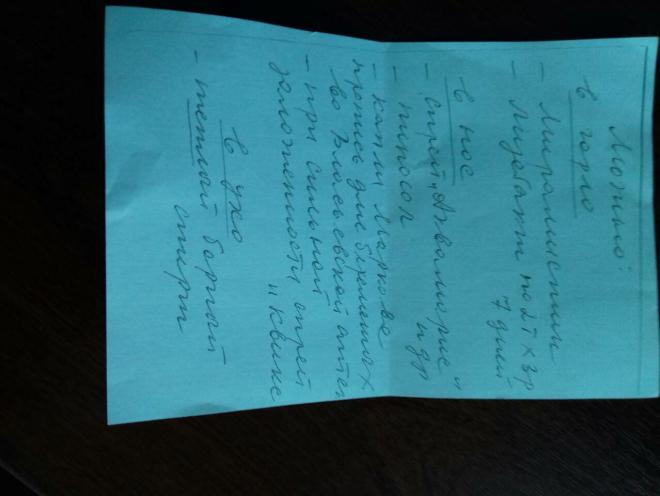 Можно:
в горло
- Мирамистин
- Лизобакт по 2т х 3р
7 дней
в нос
- спрей "Аквамарис"
и др
- пиносол
- капли Маркова
пропись для беременных
во Власьевской аптек
- при сильной
заложенности спрей
"Квикс
в ухо
- теплый борный
спирт